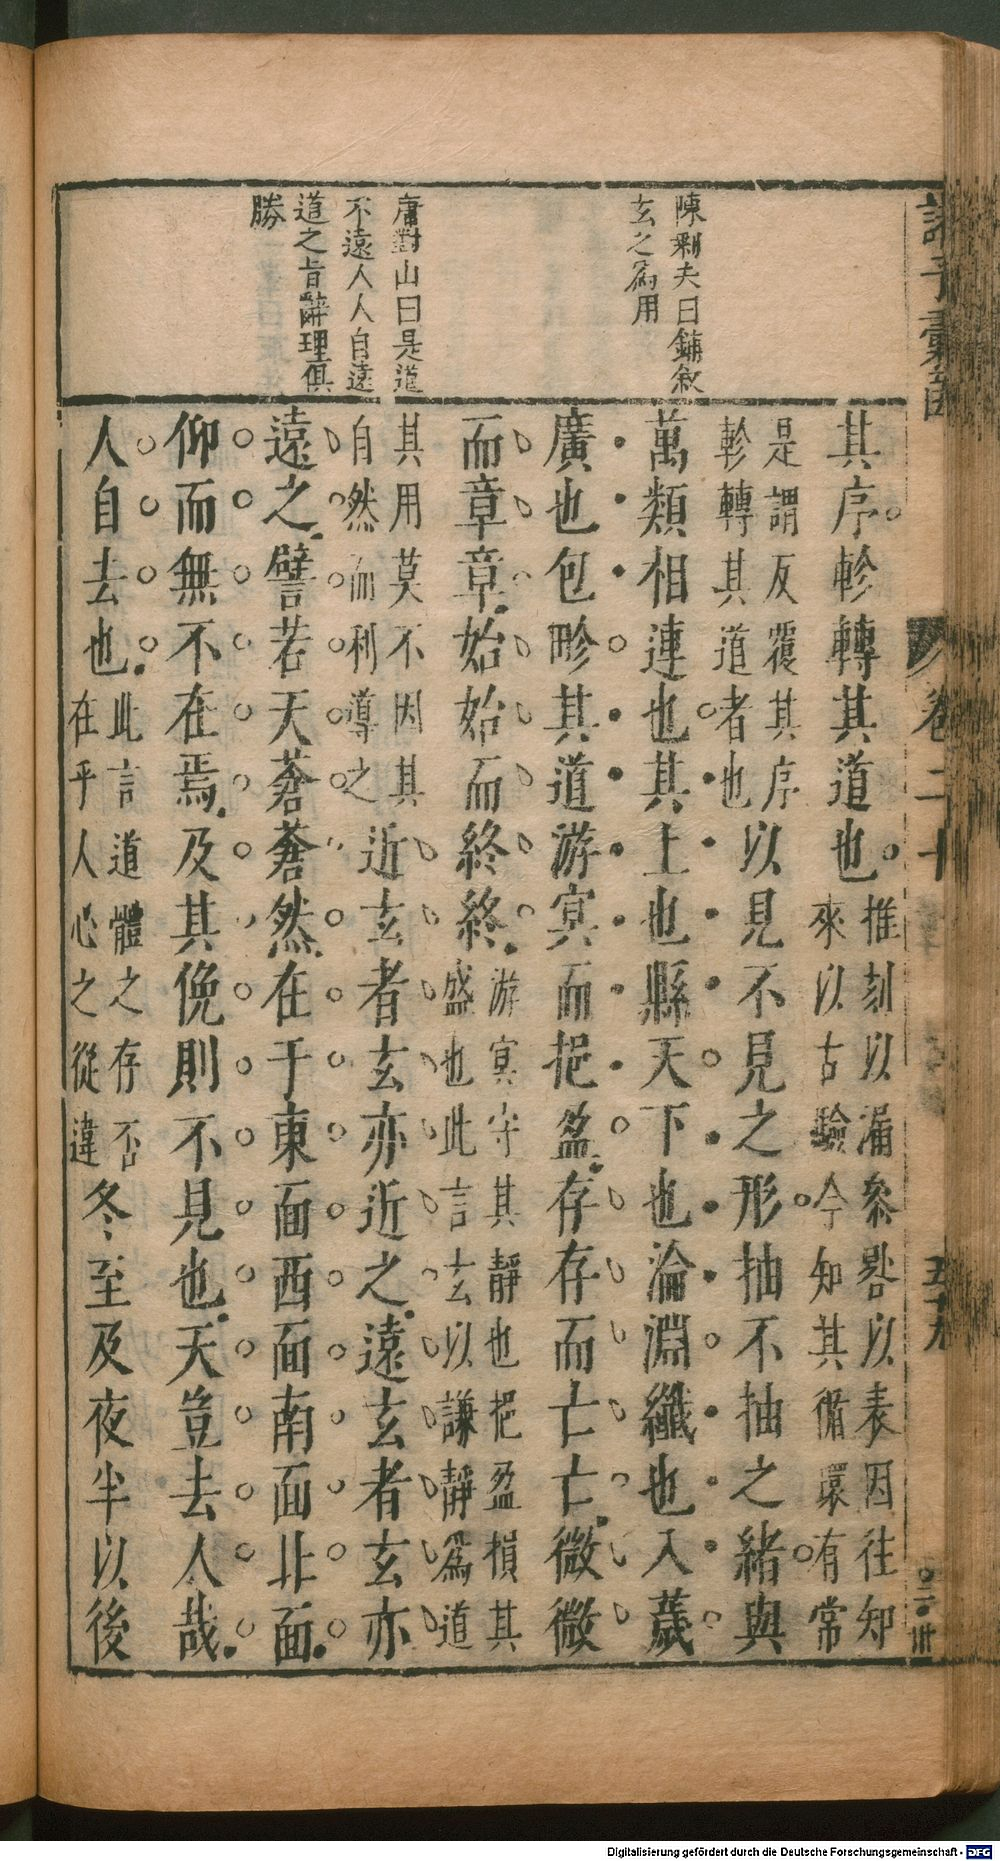 陳剩夫曰鋪敘
玄之為用
唐對山曰是道
不遠人人自遠
道之旨辭理俱
勝
其序軫轉其道也
推刻以漏參晷以表因往知
來以古驗今知其循環有常
是謂反覆其序
軫轉其道者也
以見不見之形抽不抽之緒與
萬類相連也其上也縣天下也淪淵纖也入薉
廣也包畛其道游㝠而挹盈存存而亡亡微微
而章章始始而終終
游㝠守其靜也挹盈損其
盛也此言玄以謙靜為道
其用莫不因其
自然而利導之
近玄者玄亦近之遠玄者玄亦
遠之譬若天蒼蒼然在于東面西面南面北面
仰而無不在焉及其俛則不見也天豈去人哉
人自去也
此言道體之存否
在乎人心之從違
冬至及夜半以後
卷二十
五十九
Digitalisierung gefördert durch die Deutsche Forschungsgemeinschaft - DFG